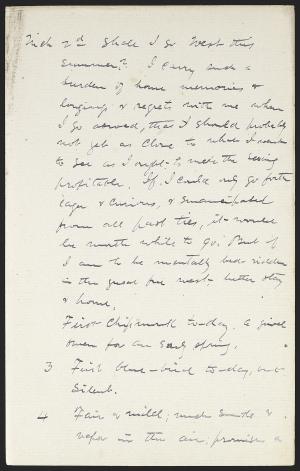 Mch 2d Shall I go West this
summer? I carry such a
burden of home memories &
longings & regrets with me when
I go abroad, that I should probably
not get as close to what I want
to see as I ought to make the seeing
profitable. If I could only go forth
eager & curious, & emancipated
from all past ties, it would
be worth while to go. But if
I am to be mentally bed ridden
in the great free west better stay
a home.
First Chipmunk to-day. A good
omen for an early spring.
3 First blue-bird to-day, but
Silent.
4 Fair & mild; much smoke &
vapor in the air; promises a